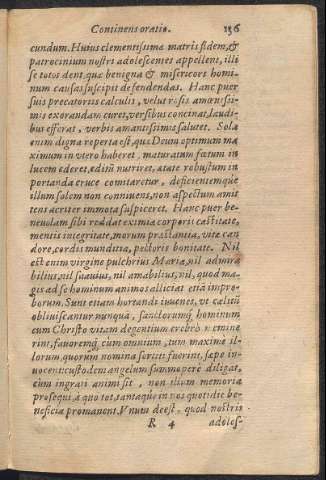 Continens oratio. 136
cundum. Huius clementissimæ matris fidem, &
patrocinium nostri adolescentes appellent, illi
se totos dent, quæ benigna & misericors homi-
num causas suscipit defendendas. Hanc puer
suis precatoriis calculis, velut rosis amœnissi-
mis exorandam curet, versibus concinat, laudi-
bus efferat, verbis amantissimis salutet. Sola
enim digna reperta est, quæ Deum optimum ma
ximum in vtero haberet, maturatum fœtum in
lucem ederet, editū nutriret, ætate robustum in
portanda cruce comitaretur, deficientemque
illum solem non connivens, non aspectum amit
tens acriter immota suspiceret. Hanc puer be-
neuolam sibi reddat eximia corporis castitate,
mentis integritate, morum præstantia, vitæ can
dore, cordis munditia, pectoris bonitate. Nil
est enim virgine pulchrius Maria, nil admira
bilius, nil suauius, nil amabilius, nil, quod ma-
gis ad se hominum animos alliciat etiā impro-
borum. Sunt etiam hortandi iuuenes, vt cælitū
obliuiscantur nunquā, sanctorumq́; hominum
cum Christo vitam degentium crebrò memine
rint, fauoremq́; cùm omnium, tum maximè il-
lorum, quorum nomina sortiti fuerint, sæpe in-
uocent: custodem angelum summopere diligāt,
cùm ingrati animi sit, non illum memoria
prosequi, à quo tot, tantaque in nos quotidie be-
neficia promanent. Vnum deest, quod nostris
R 4 adoles-